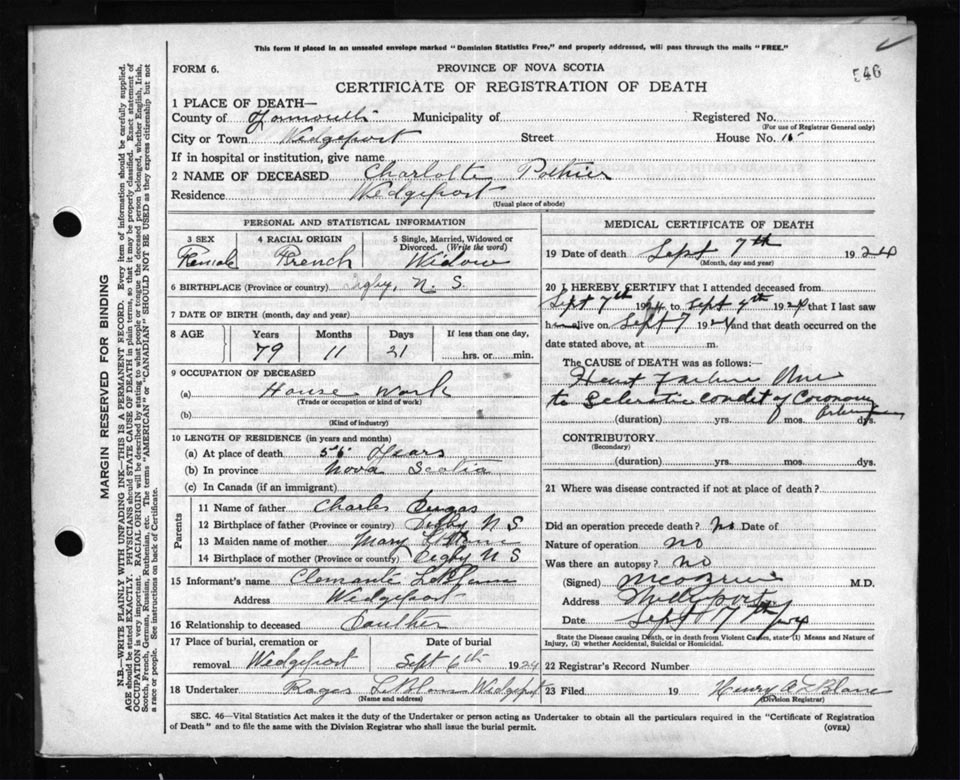 This form if placed in an unsealed envelope marked "Dominion Statistics Free," and properly addressed, will pass through the mails "FREE."
546
FORM 6.
PROVINCE OF NOVA SCOTIA
CERTIFICATE OF REGISTRATION OF DEATH
1 PLACE OF DEATH—
County of Yarmouth Municipality of Registered No.
(For use of Registrar General only)
City or Town Wedgeport Street House No. 15
If in hospital or institution, give name
2 NAME OF DECEASED Charlotte Pothier
Residence Wedgeport
(Usual place of abode)
PERSONAL AND STATISTICAL INFORMATION
3 SEX 4 RACIAL ORIGIN 5 Single, Married, Widowed or Divorced. (Write the word)
Female French Widow
6 BIRTHPLACE (Province or country) Digby, N. S.
7 DATE OF BIRTH (month, day and year)
8 AGE Years Months Days If less than one day,
79 11 21 hrs. or min.
9 OCCUPATION OF DECEASED
(a) House Work
(Trade or occupation or kind of work)
(b)
(Kind of industry)
10 LENGTH OF RESIDENCE (in years and months)
(a) At place of death Years
(b) In province Nova Scotia
(c) In Canada (if an immigrant)
Parents
11 Name of father Charles Dugas
12 Birthplace of father (Province or country) Digby N S
13 Maiden name of mother Mary
14 Birthplace of mother (Province or country) Digby N S
15 Informant's name Clemante LeBlanc
Address Wedgeport
16 Relationship to deceased Daulther
17 Place of burial, cremation or Date of burial
removal Wedgeport Sept 6th 1924
18 Undertaker LeBlanc Wedgeport
(Name and address)
MEDICAL CERTIFICATE OF DEATH
19 Date of death Sept 7th 1924
(Month, day and year)
20 I HEREBY CERTIFY that I attended deceased from
Sept 7th 1924 to Sept 7th 1924 that I last saw
h alive on Sept 7 1924 and that death occurred on the
date stated above, at m.
The CAUSE OF DEATH was as follows:—
Heart Failure Due
to Sclerotic condit of Coronary
(duration) yrs. mos. dys.
CONTRIBUTORY
(Secondary)
(duration) yrs. mos. dys.
21 Where was disease contracted if not at place of death?
Did an operation precede death? no Date of
Nature of operation no
Was there an autopsy? no
(Signed) M.D.
Address
Date Sept 7th 1924
State the Disease causing Death, or in death from Violent Causes, state (1) Means and Nature of
Injury, (2) whether Accidental, Suicidal or Homicidal.
22 Registrar's Record Number
23 Filed 19 Henry A LeBlanc
(Division Registrar)
SEC. 46—Vital Statistics Act makes it the duty of the Undertaker or person acting as Undertaker to obtain all the particulars required in the "Certificate of Registration
of Death" and to file the same with the Division Registrar who shall issue the burial permit.
(OVER)
MARGIN RESERVED FOR BINDING
N.B.—WRITE PLAINLY WITH UNFADING INK—THIS IS A PERMANENT RECORD. Every item of information should be carefully supplied.
AGE should be stated EXACTLY. PHYSICIANS should STATE CAUSE OF DEATH in plain terms, so that it may be properly classified. Exact statement of
OCCUPATION is very important. RACIAL ORIGIN will be described by stating to what people or tongue the deceased person belonged, whether English, Irish,
Scotch, French, German, Russian, Ruthenian, etc. The terms "AMERICAN" or "CANADIAN" SHOULD NOT BE USED as they express citizenship but not
a race or people. See instructions on back of Certificate.